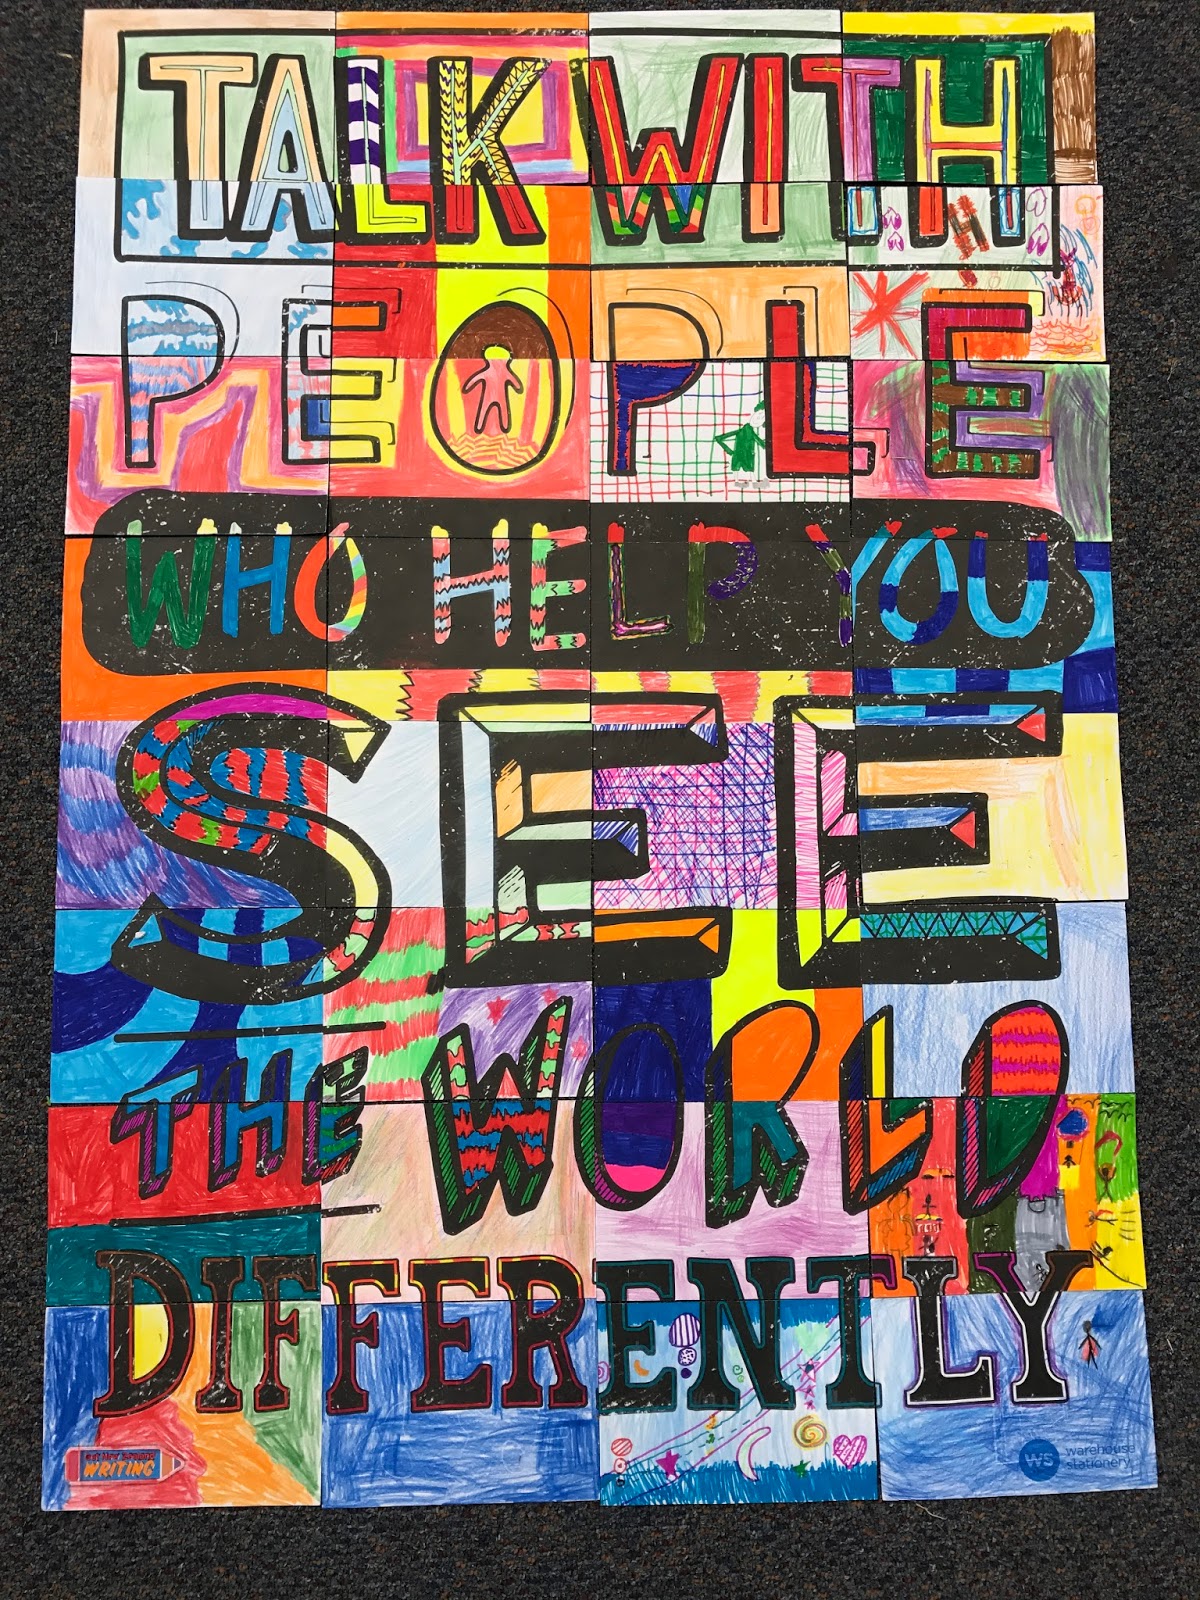 TALK WITH
PEOPLE
WHO HELP YOU
SEE
THE WORLD
DIFFERENTLY
WRITING
WS warehouse
stationery